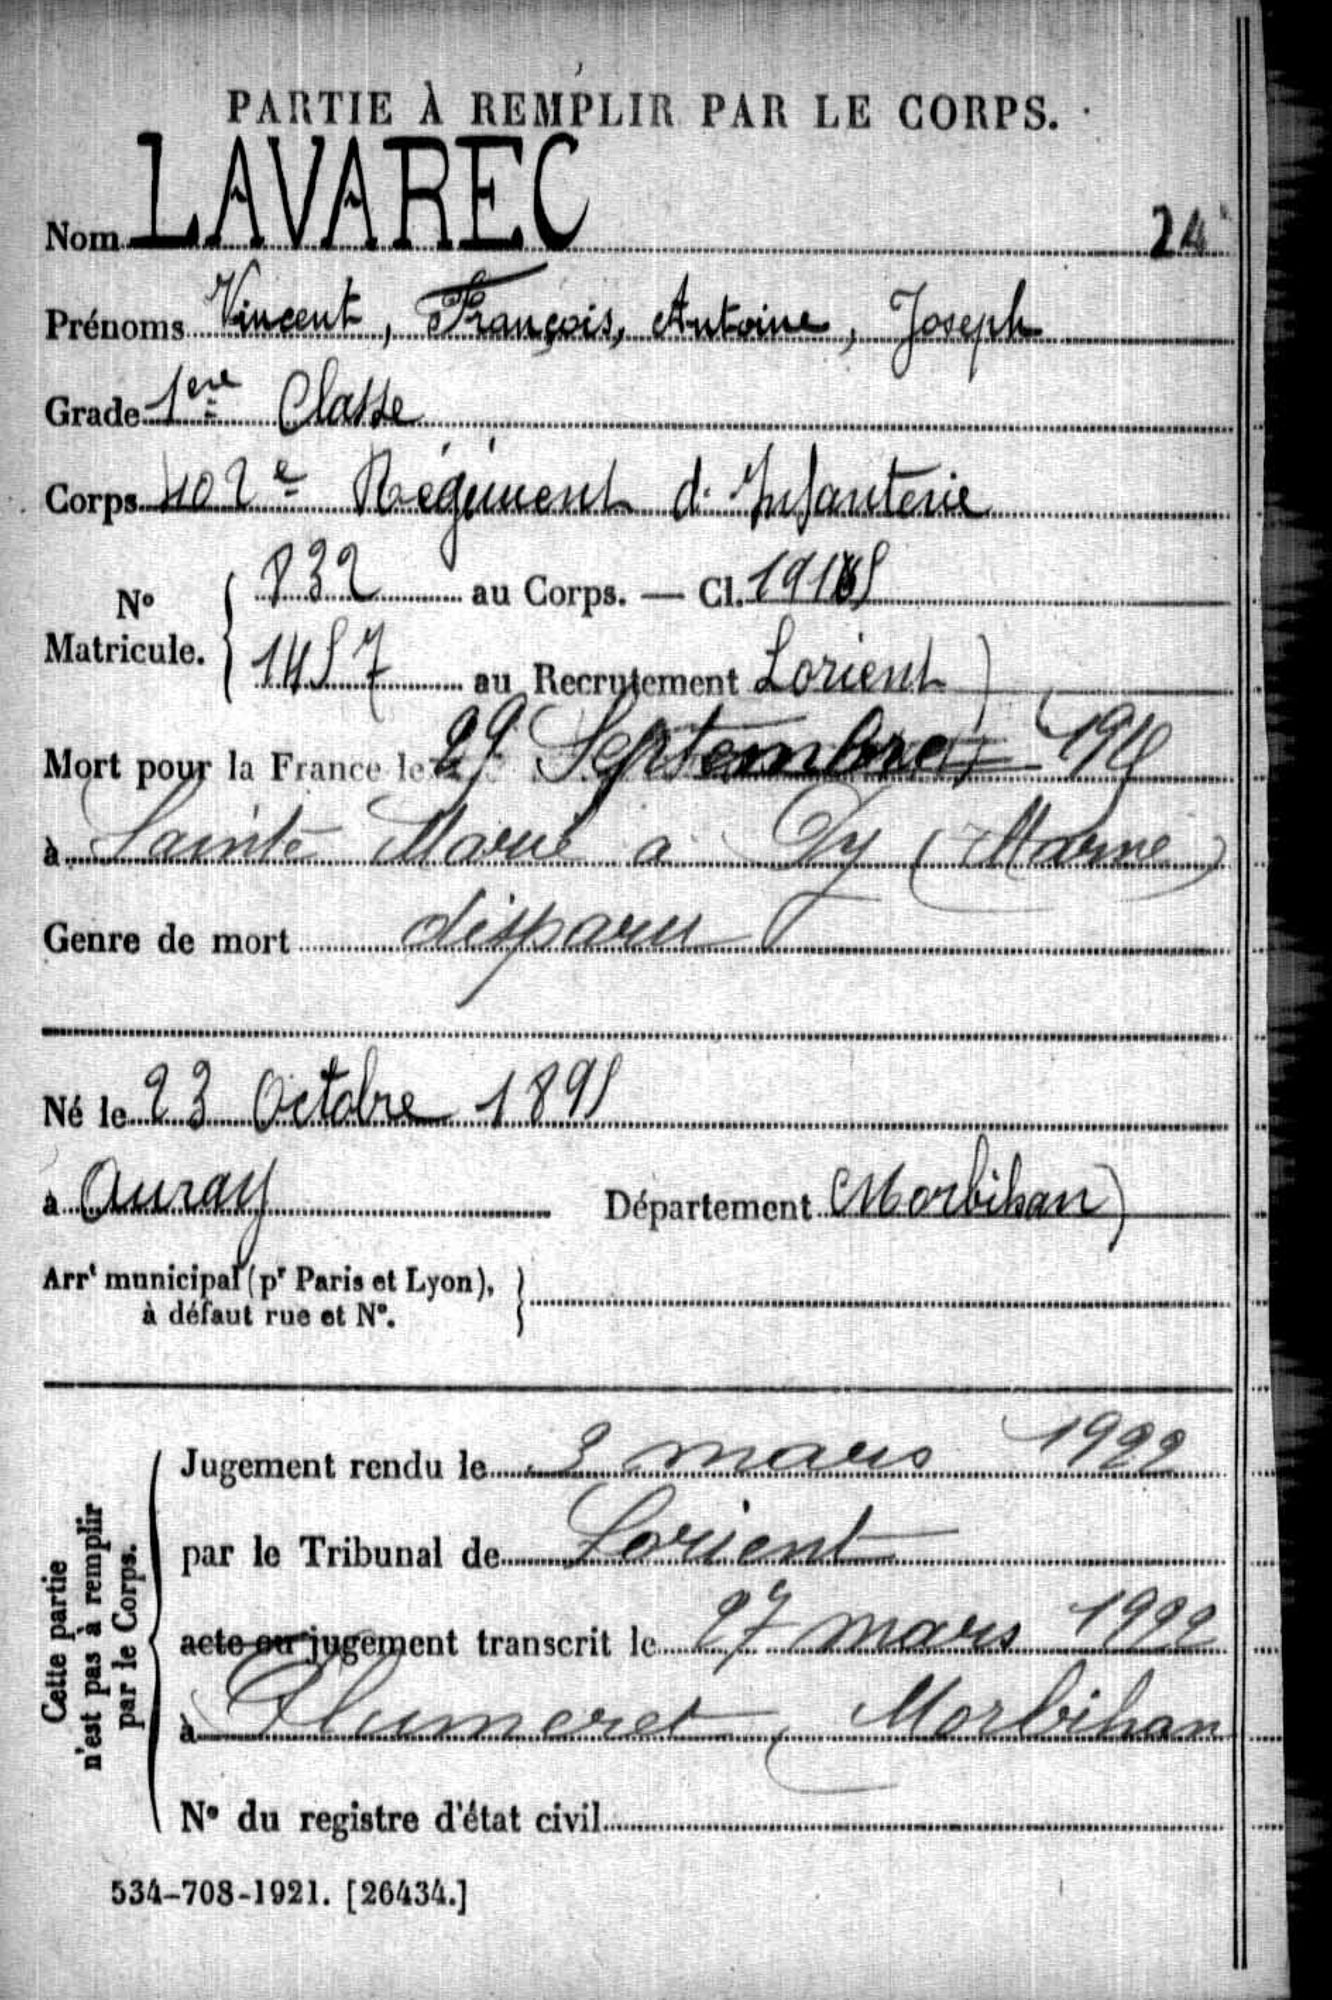 PARTIE À REMPLIR PAR LE CORPS.
Nom LAVAREC 24
Prénoms Vincent, François, Antoine, Joseph
Grade 1ère Classe
Corps 402e Régiment d'Infanterie
N° Matricule. { 832 au Corps. — Cl. 1915
1457 au Recrutement Lorient
Mort pour la France le 29 Septembre 1915
à Sainte Marie à Py (Marne)
Genre de mort disparu
Né le 23 Octobre 1895
à Auray Département Morbihan
Arrt municipal (pr Paris et Lyon),
à défaut rue et N°.
Cette partie n'est pas à remplir par le Corps.
Jugement rendu le 3 mars 1922
par le Tribunal de Lorient
acte ou jugement transcrit le 27 mars 1922
à Plumeret, Morbihan
N° du registre d'état civil
534-708-1921. [26434.]